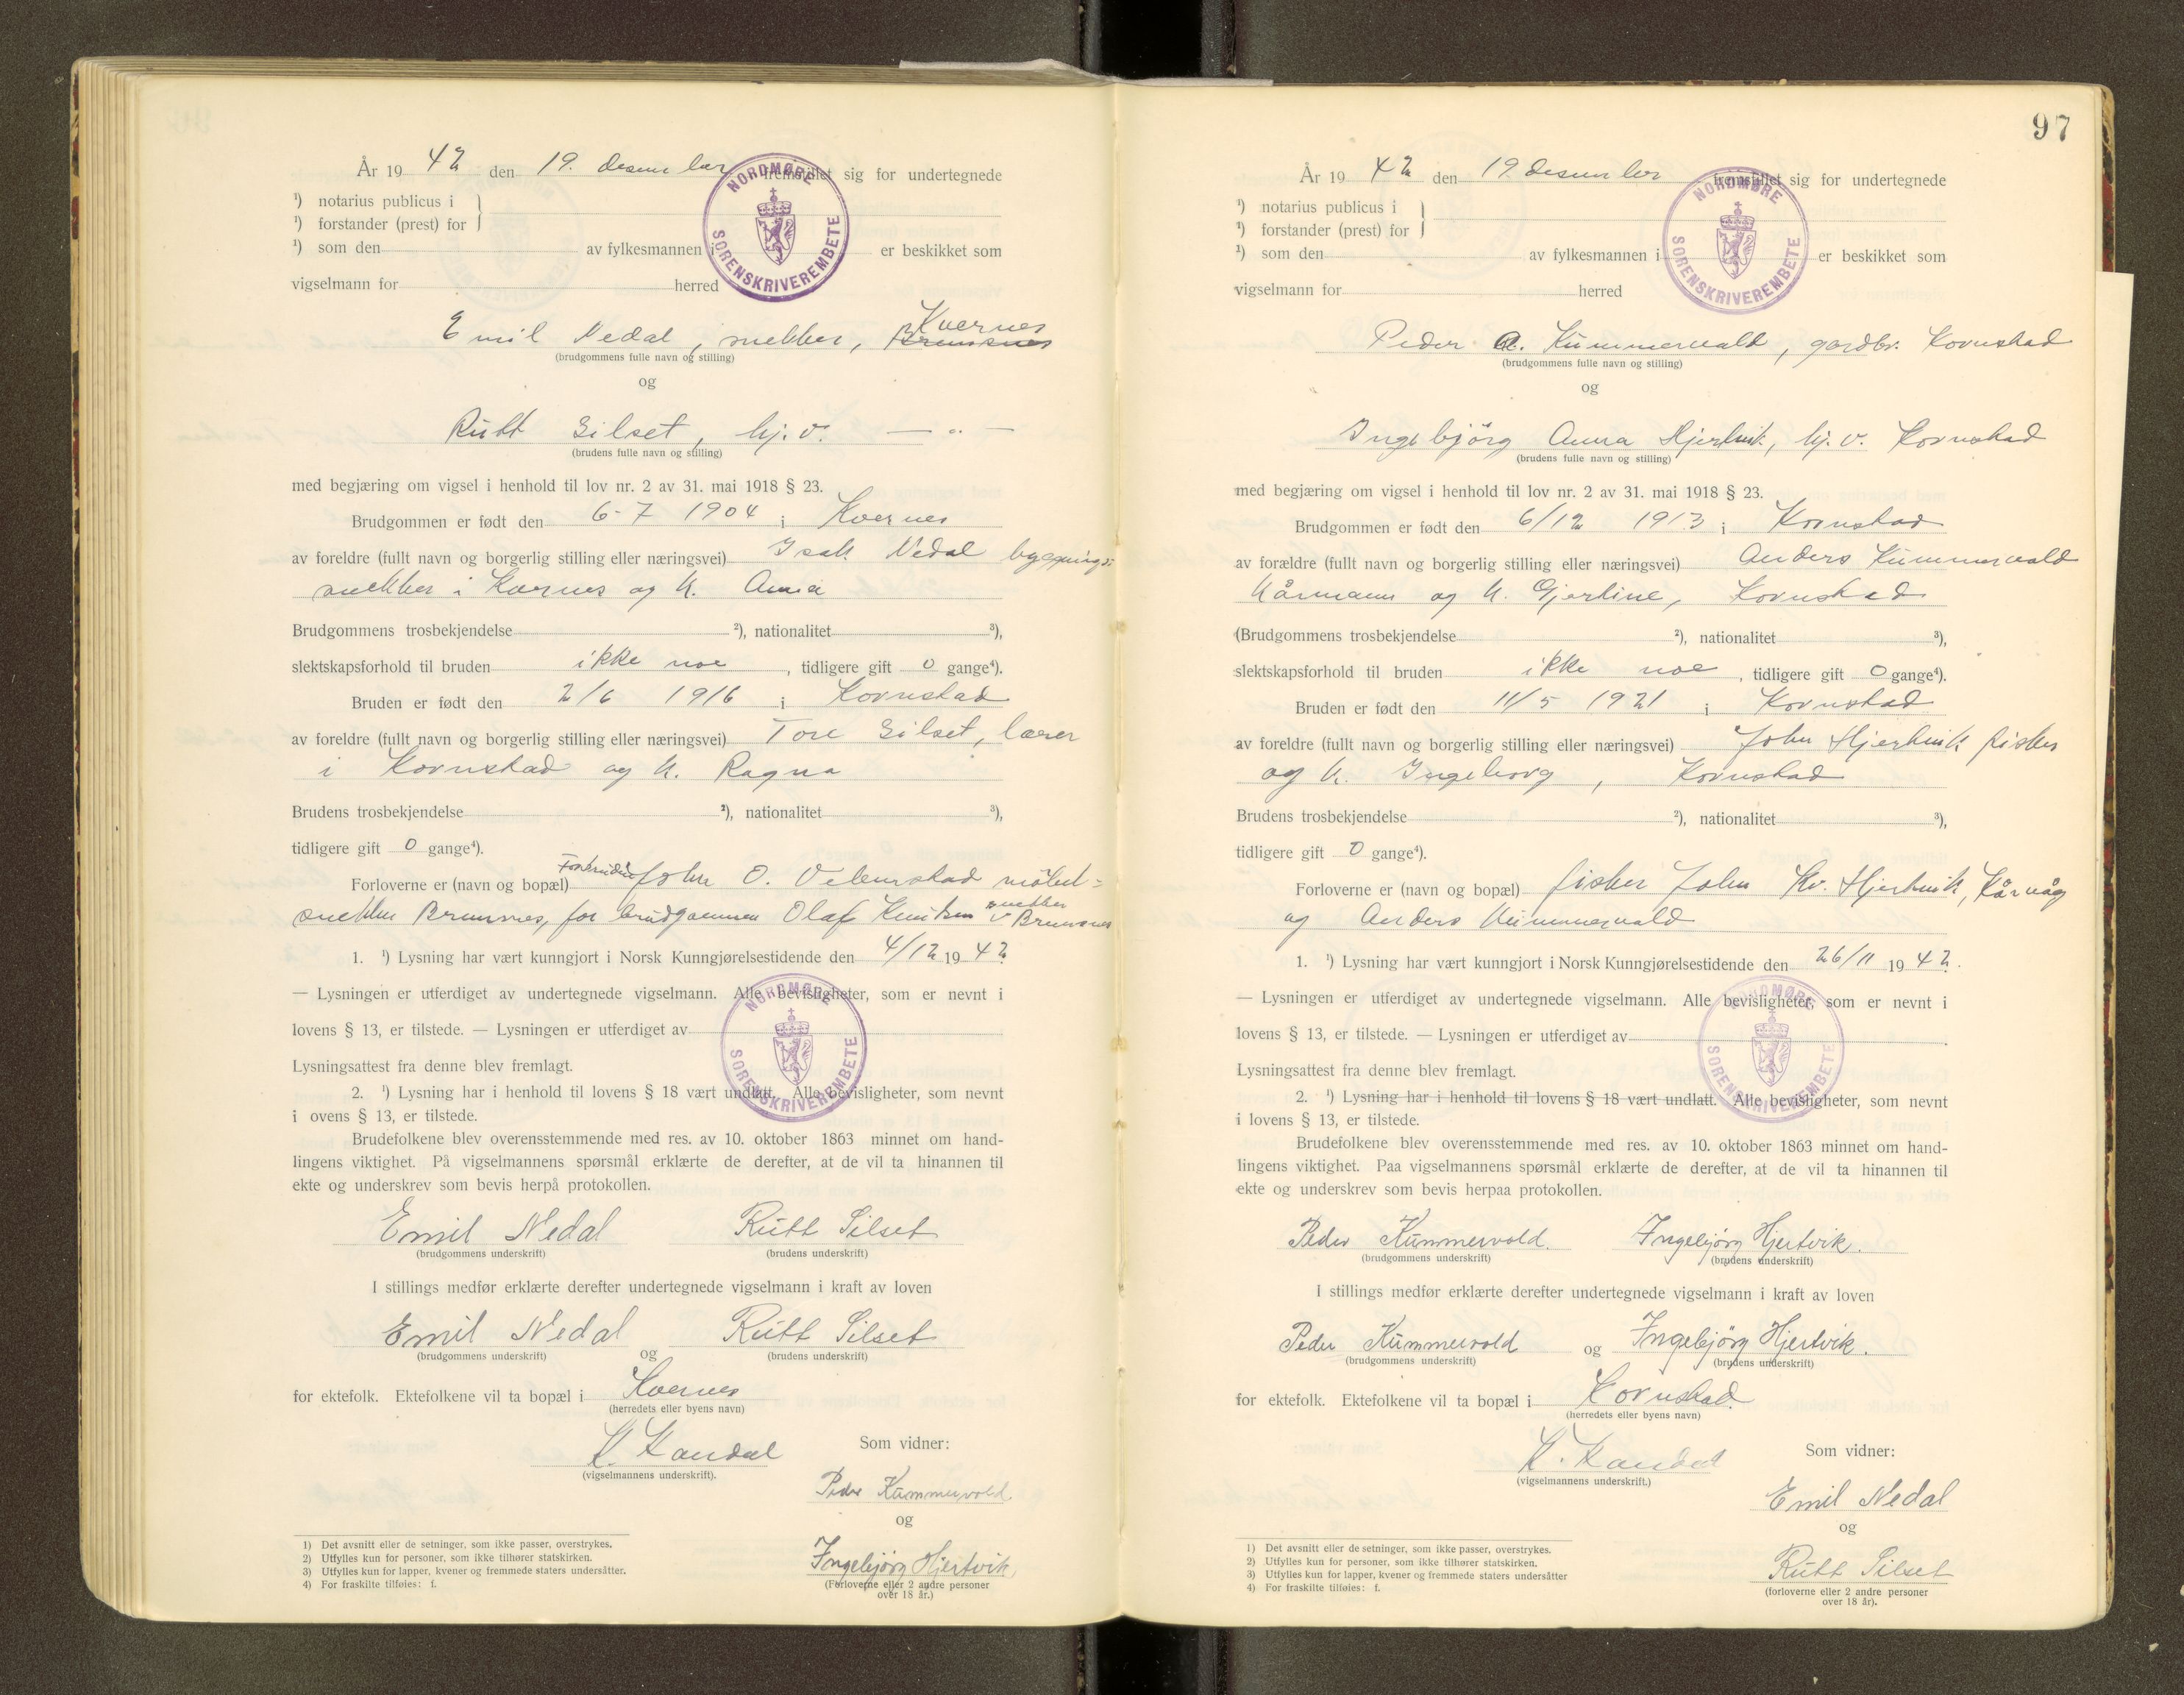 År 19 42 den 19. desember fremstillet sig for undertegnede
¹) notarius publicus i
¹) forstander (prest) for
¹) som den av fylkesmannen i er beskikket som
vigselmann for herred
NORDMØRE SORENSKRIVEREMBETE
Kvernes
Emil Nedal, snekker, Bremsnes
(brudgommens fulle navn og stilling)
og
Rutt Silset, hj.v. — " —
(brudens fulle navn og stilling)
med begjæring om vigsel i henhold til lov nr. 2 av 31. mai 1918 § 23.
Brudgommen er født den 6-7 1904 i Kvernes
av foreldre (fullt navn og borgerlig stilling eller næringsvei) Isak Nedal bygnings-
snekker i Kvernes og h. Anna
Brudgommens trosbekjendelse ²), nationalitet ³),
slektskapsforhold til bruden ikke noe, tidligere gift 0 gange⁴).
Bruden er født den 2/6 1916 i Kornstad
av foreldre (fullt navn og borgerlig stilling eller næringsvei) Tore Silset, lærer
i Kornstad og h. Ragna
Brudens trosbekjendelse ²), nationalitet ³),
tidligere gift 0 gange⁴).
Forloverne er (navn og bopæl) For bruden John O. møbel-
snekker Bremsnes, for brudgommen Olaf Knutsen snekker Bremsnes
1. ¹) Lysning har vært kunngjort i Norsk Kunngjørelsestidende den 4/12 19 42
— Lysningen er utferdiget av undertegnede vigselmann. Alle bevisligheter, som er nevnt i
lovens § 13, er tilstede. — Lysningen er utferdiget av
Lysningsattest fra denne blev fremlagt.
NORDMØRE SORENSKRIVEREMBETE
2. ¹) Lysning har i henhold til lovens § 18 vært undlatt. Alle bevisligheter, som nevnt
i ovens § 13, er tilstede.
Brudefolkene blev overensstemmende med res. av 10. oktober 1863 minnet om hand-
lingens viktighet. På vigselmannens spørsmål erklærte de derefter, at de vil ta hinannen til
ekte og underskrev som bevis herpå protokollen.
Emil Nedal Rutt Silset
(brudgommens underskrift) (brudens underskrift)
I stillings medfør erklærte derefter undertegnede vigselmann i kraft av loven
Emil Nedal og Rutt Silset
(brudgommens underskrift) (brudens underskrift)
for ektefolk. Ektefolkene vil ta bopæl i Kvernes
(herredets eller byens navn)
K. Kandal
(vigselmannens underskrift).
Som vidner:
Peder Kummervold.
og
Ingebjørg Hjertvik
(Forloverne eller 2 andre personer
over 18 år.)
1) Det avsnitt eller de setninger, som ikke passer, overstrykes.
2) Utfylles kun for personer, som ikke tilhører statskirken.
3) Utfylles kun for lapper, kvener og fremmede staters undersåtter.
4) For fraskilte tilføies: f.
97
År 19 42 den 19 desember fremstillet sig for undertegnede
¹) notarius publicus i
¹) forstander (prest) for
¹) som den av fylkesmannen i er beskikket som
vigselmann for herred
NORDMØRE SORENSKRIVEREMBETE
Peder A. Kummervold, gardbr. Kornstad
(brudgommens fulle navn og stilling)
og
Ingebjörg Anna Hjertvik, hj.v. Kornstad
(brudens fulle navn og stilling)
med begjæring om vigsel i henhold til lov nr. 2 av 31. mai 1918 § 23.
Brudgommen er født den 6/12 1913 i Kornstad
av forældre (fullt navn og borgerlig stilling eller næringsvei) Anders Kummervold
kårmann og h. Gjertine, Kornstad
(Brudgommens trosbekjendelse ²), nationalitet ³),
slektskapsforhold til bruden ikke noe, tidligere gift 0 gange⁴).
Bruden er født den 11/5 1921 i Kornstad
av foreldre (fullt navn og borgerlig stilling eller næringsvei) John Hjertvik fisker
og h. Ingeborg, Kornstad
Brudens trosbekjendelse ²), nationalitet ³),
tidligere gift 0 gange⁴).
Forloverne er (navn og bopæl) fisker John Kr. Hjertvik, Kårvåg
og Anders Kummervold
1. ¹) Lysning har vært kunngjort i Norsk Kunngjørelsestidende den 26/11 19 42.
— Lysningen er utferdiget av undertegnede vigselmann. Alle bevisligheter, som er nevnt i
lovens § 13, er tilstede. — Lysningen er utferdiget av
Lysningsattest fra denne blev fremlagt.
NORDMØRE SORENSKRIVEREMBETE
2. ¹) Lysning har i henhold til lovens § 18 vært undlatt. Alle bevisligheter, som nevnt
i lovens § 13, er tilstede.
Brudefolkene blev overensstemmende med res. av 10. oktober 1863 minnet om hand-
lingens viktighet. Paa vigselmannens spørsmål erklærte de derefter, at de vil ta hinannen til
ekte og underskrev som bevis herpaa protokollen.
Peder Kummervold. Ingebjørg Hjertvik.
(brudgommens underskrift) (brudens underskrift)
I stillings medfør erklærte derefter undertegnede vigselmann i kraft av loven
Peder Kummervold og Ingebjørg Hjertvik.
(brudgommens underskrift) (brudens underskrift)
for ektefolk. Ektefolkene vil ta bopæl i Kornstad
(herredets eller byens navn)
K. Kandal
(vigselmannens underskrift.)
Som vidner:
Emil Nedal
og
Rutt Silset
(forloverne eller 2 andre personer
over 18 år).
1) Det avsnitt eller de setninger, som ikke passer, overstrykes.
2) Utfylles kun for personer, som ikke tilhører statskirken.
3) Utfylles kun for lapper, kvener og fremmede staters undersåtter
4) For fraskilte tilføies: f.